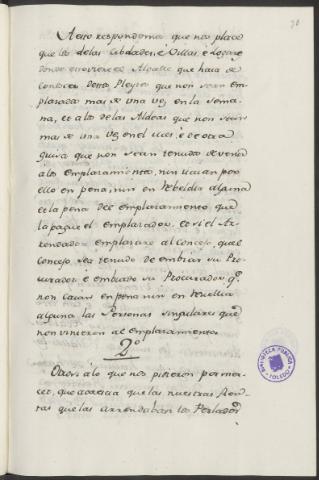 30
A esto respondemos que nos place
que los delas Cibdades, é Villas, é Logares
donde estoviere el Alcalle que haia de
conoscer destos Pleytos que non sean em
plasados mas de una vez en la sema
na, et a los delas Aldeas que non sean
mas de una vez en el mes é de otra
guisa que non sean tenudos de venir
alos emplasamientos, nin caian por
ello en pena, nin en rebeldia alguna
et la pena del emplasamiento que
la pague el emplasador, et si el Ar
rendador emplasare al Concejo, quel
Concejo sea tenudo de embiar su Pro
curador, é embiado su Procurador q.e
non caian en pena nin en revellia
alguna las Personas singulares que
non vinieren al emplasamiento.
2.º
Otrosi alo que nos pidieron por mer
ced, que acaescia que las nuestras Ren
tas que las arrendaban los Perlados
BIBLIOTECA PÚBLICA
TOLEDO